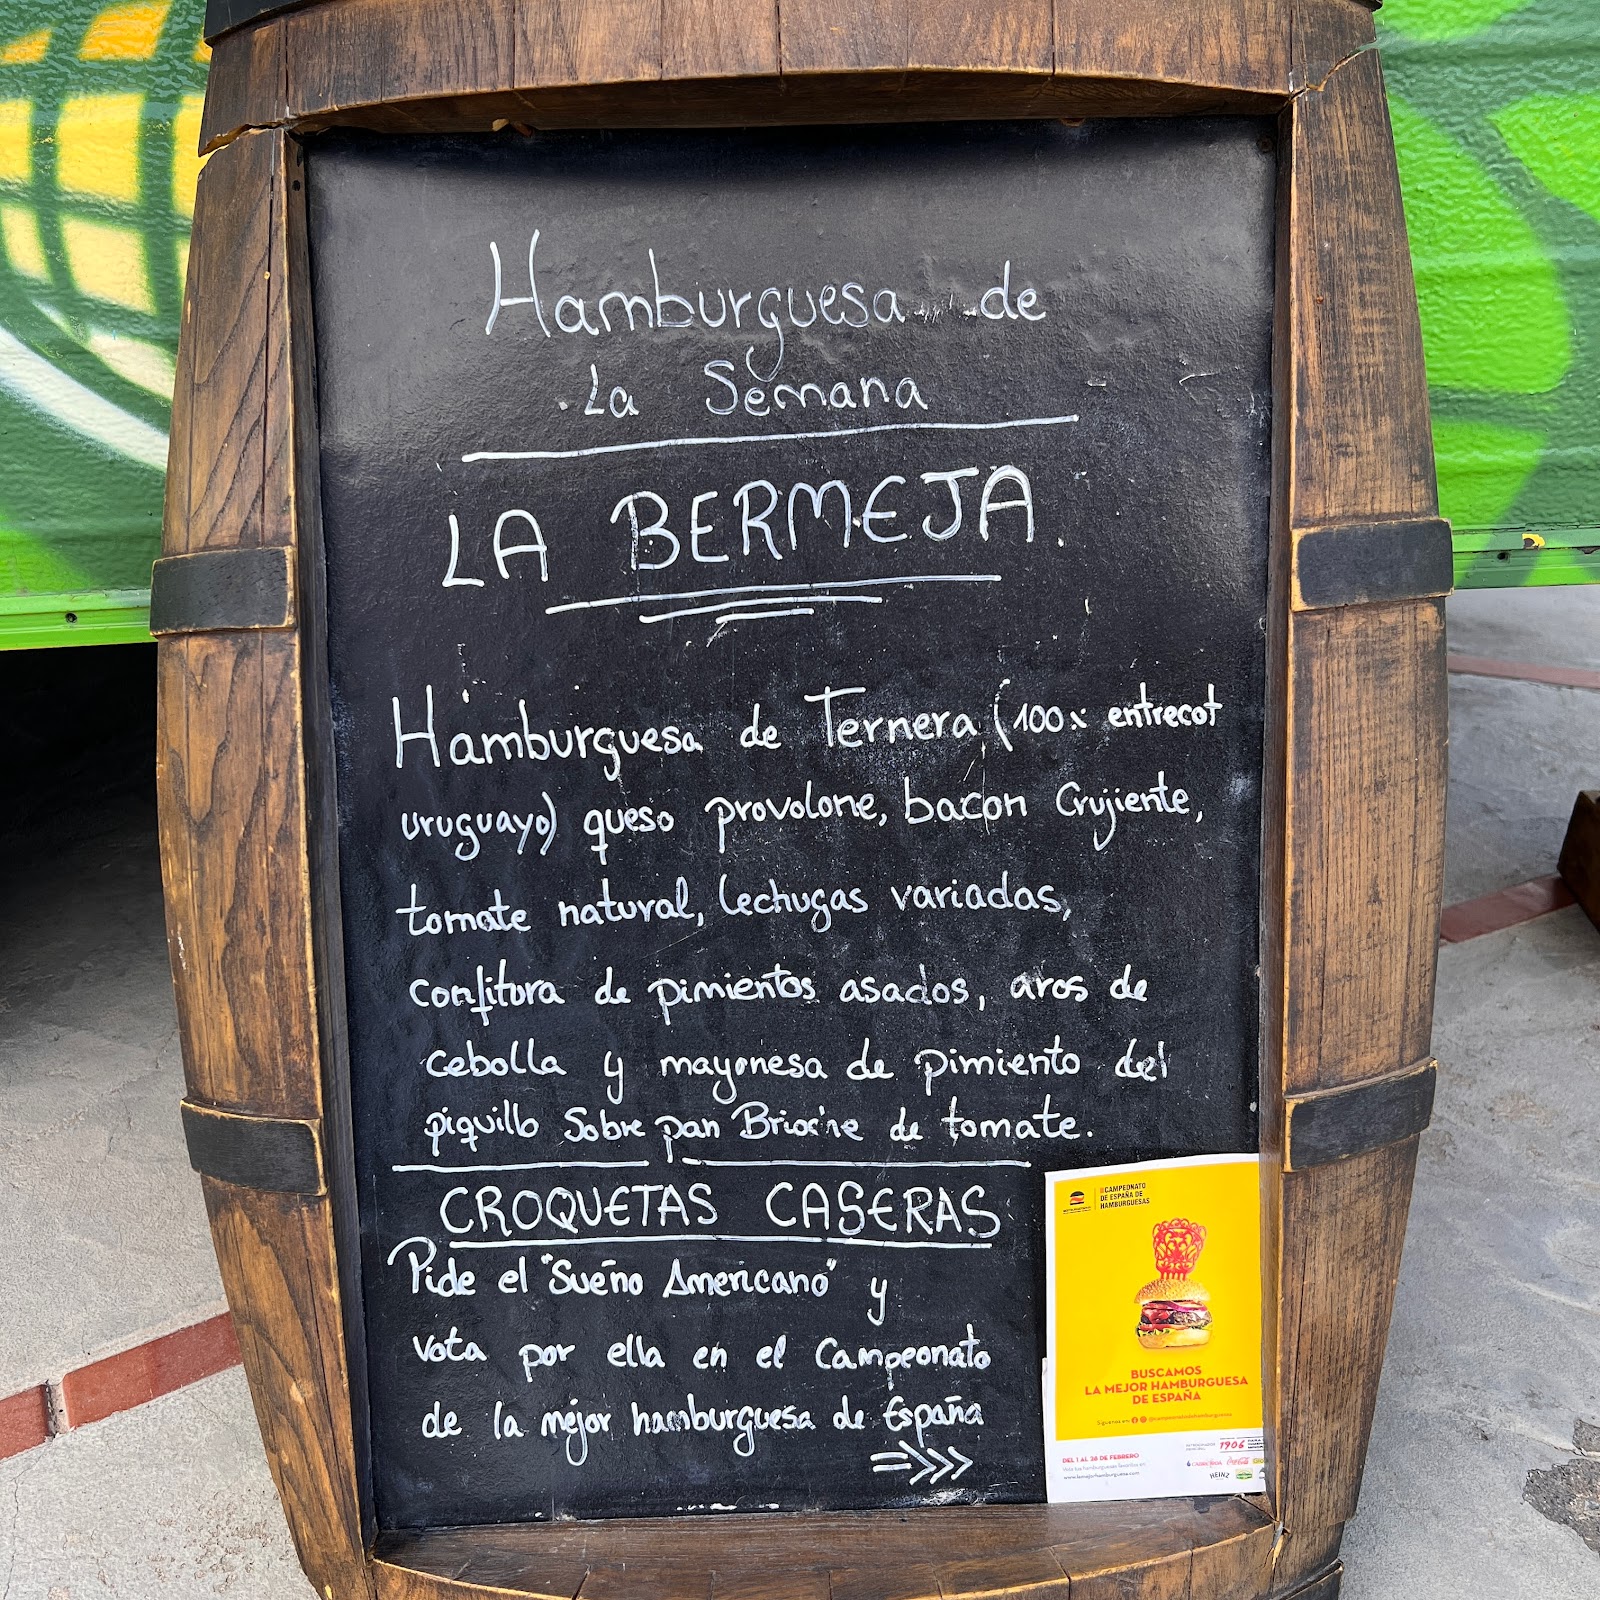 Hamburguesa de
La Semana
LA BERMEJA.
Hamburguesa de Ternera (100% entrecot
uruguayo) queso provolone, bacon Crujiente,
tomate natural, lechugas variadas,
confitura de pimientos asados, aros de
cebolla y mayonesa de pimiento del
piquillo Sobre pan Brioche de tomate.
CROQUETAS CASERAS
Pide el "Sueño Americano" y
vota por ella en el Campeonato
de la mejor hamburguesa de España
CAMPEONATO
DE ESPAÑA DE
HAMBURGUESAS
BUSCAMOS
LA MEJOR HAMBURGUESA
DE ESPAÑA
Síguenos en:
DEL 1 AL 28 DE FEBRERO
1906
Coca-Cola
HEINZ